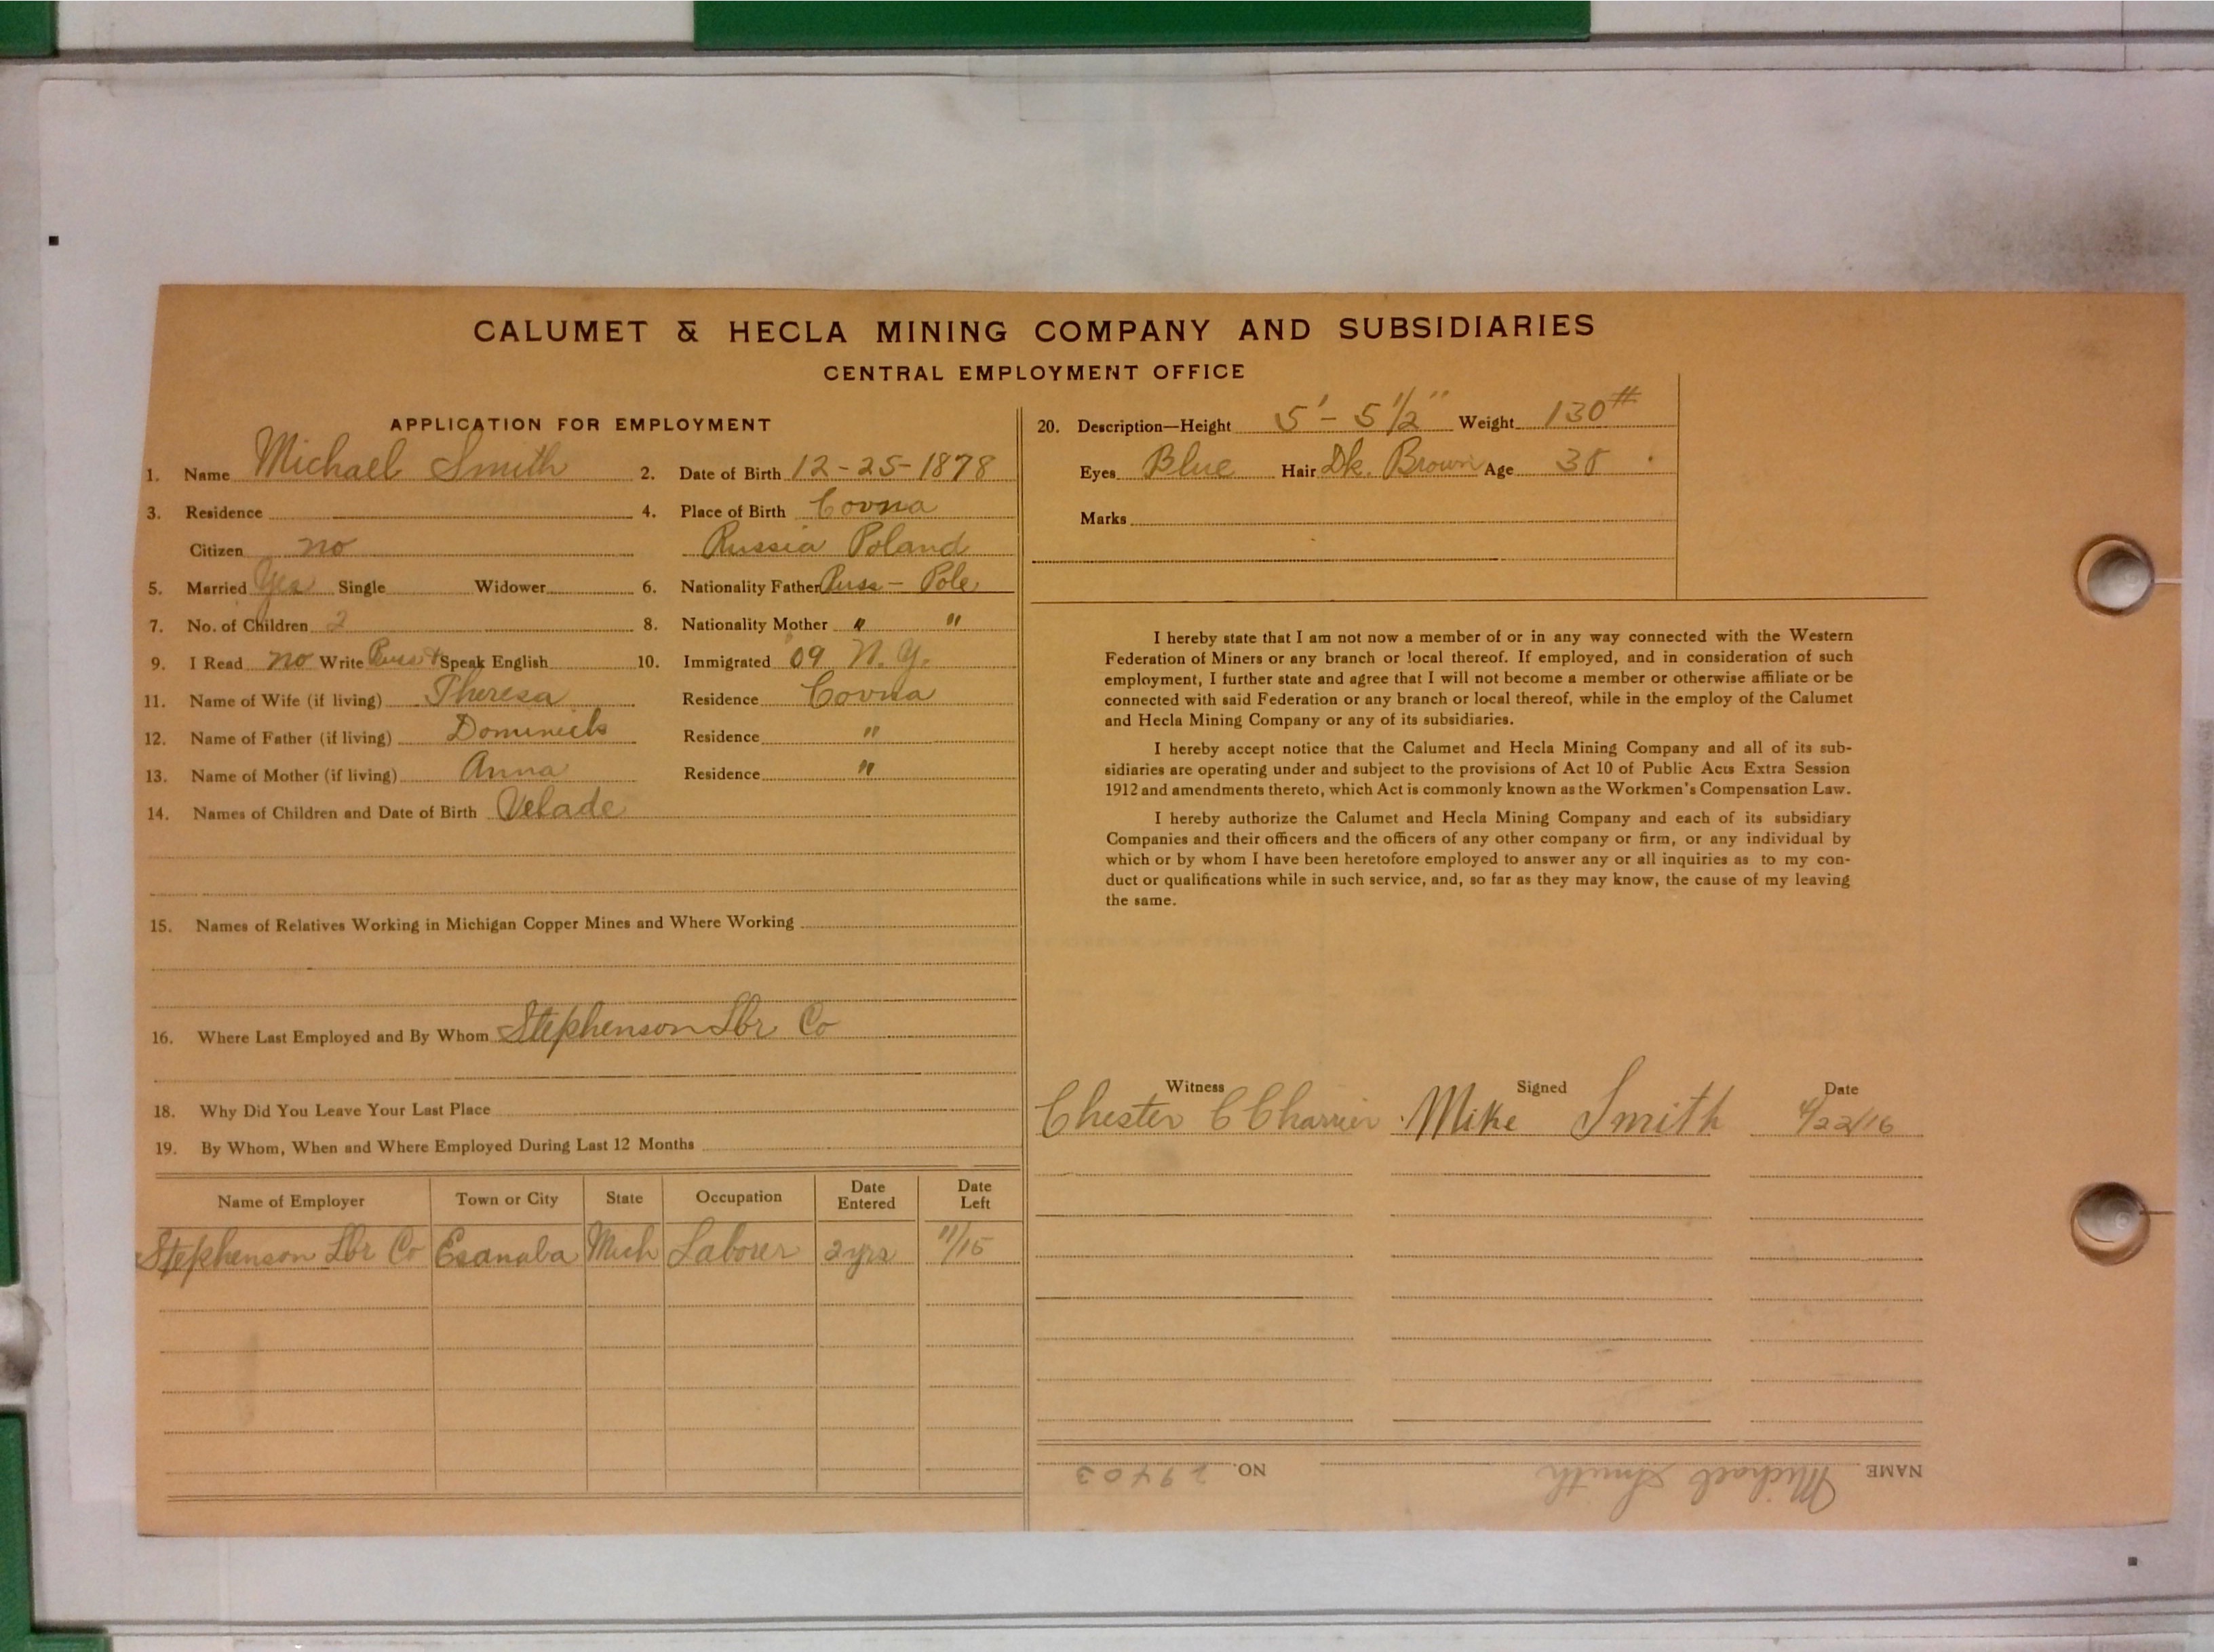 CALUMET & HECLA MINING COMPANY AND SUBSIDIARIES
CENTRAL EMPLOYMENT OFFICE
APPLICATION FOR EMPLOYMENT
1. Name Michael Smith 2. Date of Birth 12-25-1878
3. Residence 4. Place of Birth Covna
Citizen no Russia Poland
5. Married Yes Single Widower 6. Nationality Father Russ - Pole
7. No. of Children 2 8. Nationality Mother " "
9. I Read no Write Russ Speak English 10. Immigrated '09 N.Y.
11. Name of Wife (if living) Theresa Residence Covna
12. Name of Father (if living) Dominick Residence "
13. Name of Mother (if living) Anna Residence "
14. Names of Children and Date of Birth Velade
15. Names of Relatives Working in Michigan Copper Mines and Where Working
16. Where Last Employed and By Whom Stephenson Lbr Co
18. Why Did You Leave Your Last Place
19. By Whom, When and Where Employed During Last 12 Months
Name of Employer Town or City State Occupation Date Entered Date Left
Stephenson Lbr Co Esanaba Mich Laborer 2 yrs 11/15
20. Description—Height 5'-5 1/2" Weight 130#
Eyes Blue Hair Dk. Brown Age 38
Marks
I hereby state that I am not now a member of or in any way connected with the Western
Federation of Miners or any branch or local thereof. If employed, and in consideration of such
employment, I further state and agree that I will not become a member or otherwise affiliate or be
connected with said Federation or any branch or local thereof, while in the employ of the Calumet
and Hecla Mining Company or any of its subsidiaries.
I hereby accept notice that the Calumet and Hecla Mining Company and all of its sub-
sidiaries are operating under and subject to the provisions of Act 10 of Public Acts Extra Session
1912 and amendments thereto, which Act is commonly known as the Workmen's Compensation Law.
I hereby authorize the Calumet and Hecla Mining Company and each of its subsidiary
Companies and their officers and the officers of any other company or firm, or any individual by
which or by whom I have been heretofore employed to answer any or all inquiries as to my con-
duct or qualifications while in such service, and, so far as they may know, the cause of my leaving
the same.
Witness Signed Date
Chester C Charrier Mike Smith 4/22/16
NAME Michael Smith NO. 29403